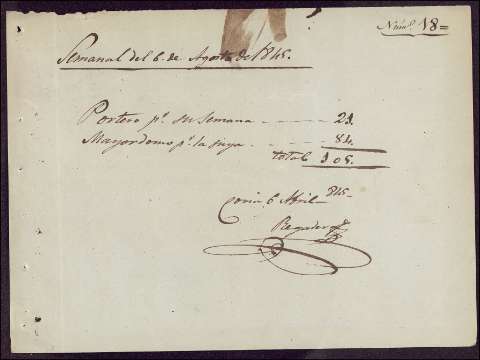 Num.º 18=
Semanal del 6. de Agosto de 1845.
Portero p.r su semana 21.
Mayordomo p.r la suya 84.
total 105.
Coria 6 Abril 845-